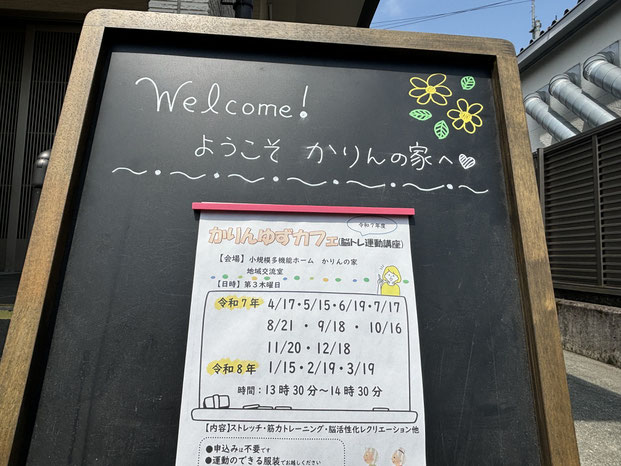 Welcome!
ようこそ かりんの家へ
令和7年度
かりんゆずカフェ(脳トレ運動講座)
【会場】小規模多機能ホーム かりんの家
地域交流室
【日時】第3木曜日
令和7年 4/17・5/15・6/19・7/17
8/21 ・ 9/18 ・ 10/16
11/20 ・ 12/18
令和8年 1/15・2/19・3/19
時間：13時30分～14時30分
【内容】ストレッチ・筋力トレーニング・脳活性化レクリエーション他
●申込みは不要です
●運動のできる服装でお越しください